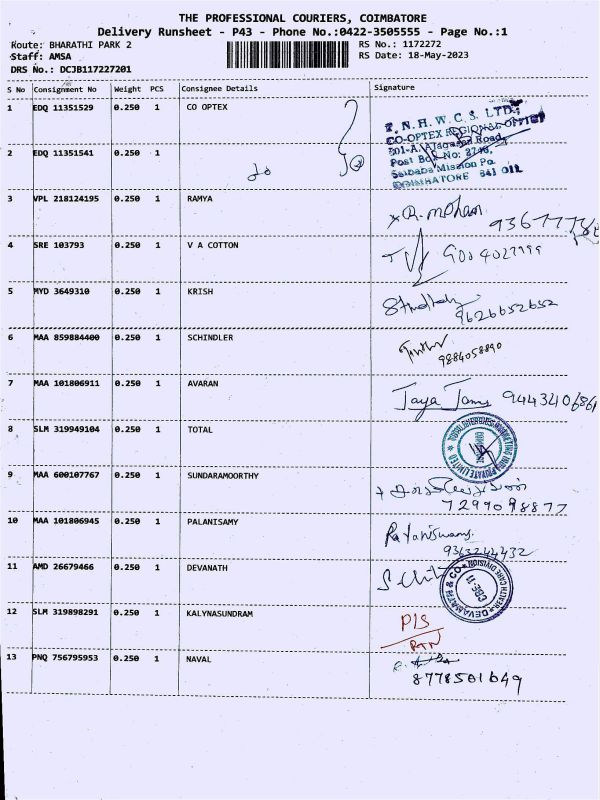 THE PROFESSIONAL COURIERS, COIMBATORE
Delivery Runsheet - P43 - Phone No.:0422-3505555 - Page No.:1
Route: BHARATHI PARK 2
RS No.: 1172272
Staff: AMSA
RS Date: 18-May-2023
DRS No.: DCJB117227201
S No Consignment No Weight PCS Consignee Details Signature
1 EDQ 11351529 0.250 1 CO OPTEX
T. N. H. W. C. S. LTD.,
CO-OPTEX REGIONAL OFFICE
Road,
Post Box No: 2746,
Saibaba Mission Po
COIMBATORE 641 011.
2 EDQ 11351541 0.250 1
3 VPL 218124195 0.250 1 RAMYA
R. mohan
4 SRE 103793 0.250 1 V A COTTON
5 MYD 3649310 0.250 1 KRISH
9626652652
6 MAA 859884400 0.250 1 SCHINDLER
9884058890
7 MAA 101806911 0.250 1 AVARAN
Jaya
8 SLM 319949104 0.250 1 TOTAL
9 MAA 600107767 0.250 1 SUNDARAMOORTHY
7299098877
10 MAA 101806945 0.250 1 PALANISAMY
9363244432
11 AMD 26679466 0.250 1 DEVANATH
DEVAMATH & CO
HEALTH CARE DIVISION
CBE-11
12 SLM 319898291 0.250 1 KALYNASUNDRAM
13 PNQ 756795953 0.250 1 NAVAL
8778501649